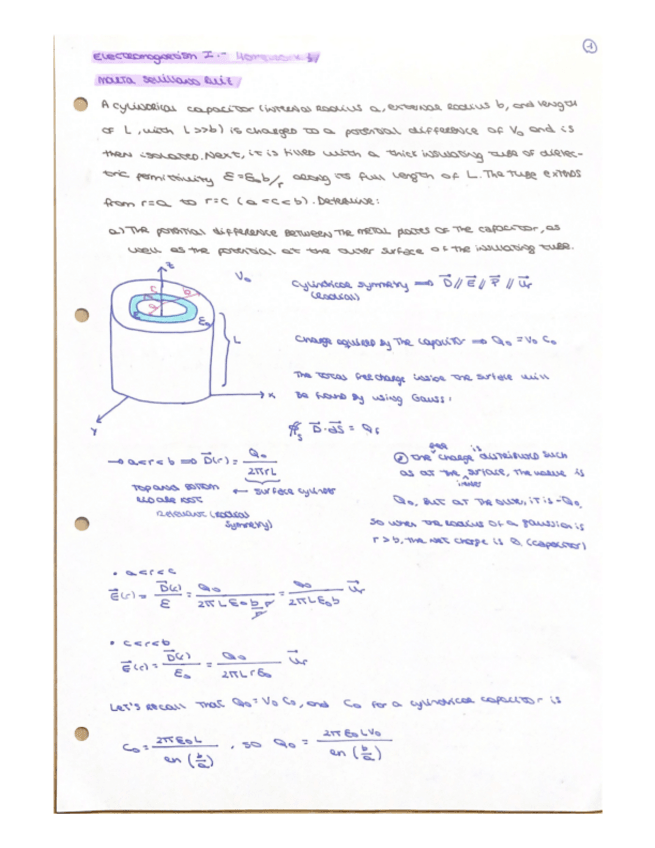 1
Electromagnetism I.- Homework
A cylindrical capacitor (internal radius a, external radius b, and length
of L, with L >> b) is charged to a potential difference of V₀ and is
then isolated. Next, it is filled with a thick insulating tube of dielec-
tric permittivity ε = ε₀ b/r along its full length of L. The tube extends
from r=a to r=c (a<c<b). Determine:
a) The potential difference between the metal plates of the capacitor, as
well as the potential at the outer surface of the insulating tube.
z
V₀
c
b
a
ε
ε₀
L
x
y
Cylindrical symmetry ⟹ D⃗ // E⃗ // P⃗ // u⃗r
(radial)
Charge acquired by the capacitor ⟹ Q₀ = V₀ C₀
The total free charge inside the surface will
be found by using Gauss:
∯s D⃗·dS⃗ = Qf
→ a<r<b ⟹ D⃗(r) = Q₀ / 2πrL
Top and bottom ← surface cylinder
are not
relevant (radial
symmetry)
The free charge is distributed such
as at the inner surface, the value is
Q₀, but at the outer, it is -Q₀,
so when the radius of a gaussian is
r > b, the net charge is 0. (capacitor)
• a<r<c
E⃗(r) = D⃗(r) / ε = Q₀ / 2πLε₀ b/r r = Q₀ / 2πLε₀b u⃗r
• c<r<b
E⃗(r) = D⃗(r) / ε₀ = Q₀ / 2πLrε₀ u⃗r
Let's recall that Q₀ = V₀ C₀, and C₀ for a cylindrical capacitor is
C₀ = 2πε₀L / ln (b/a) , so Q₀ = 2πε₀LV₀ / ln (b/a)